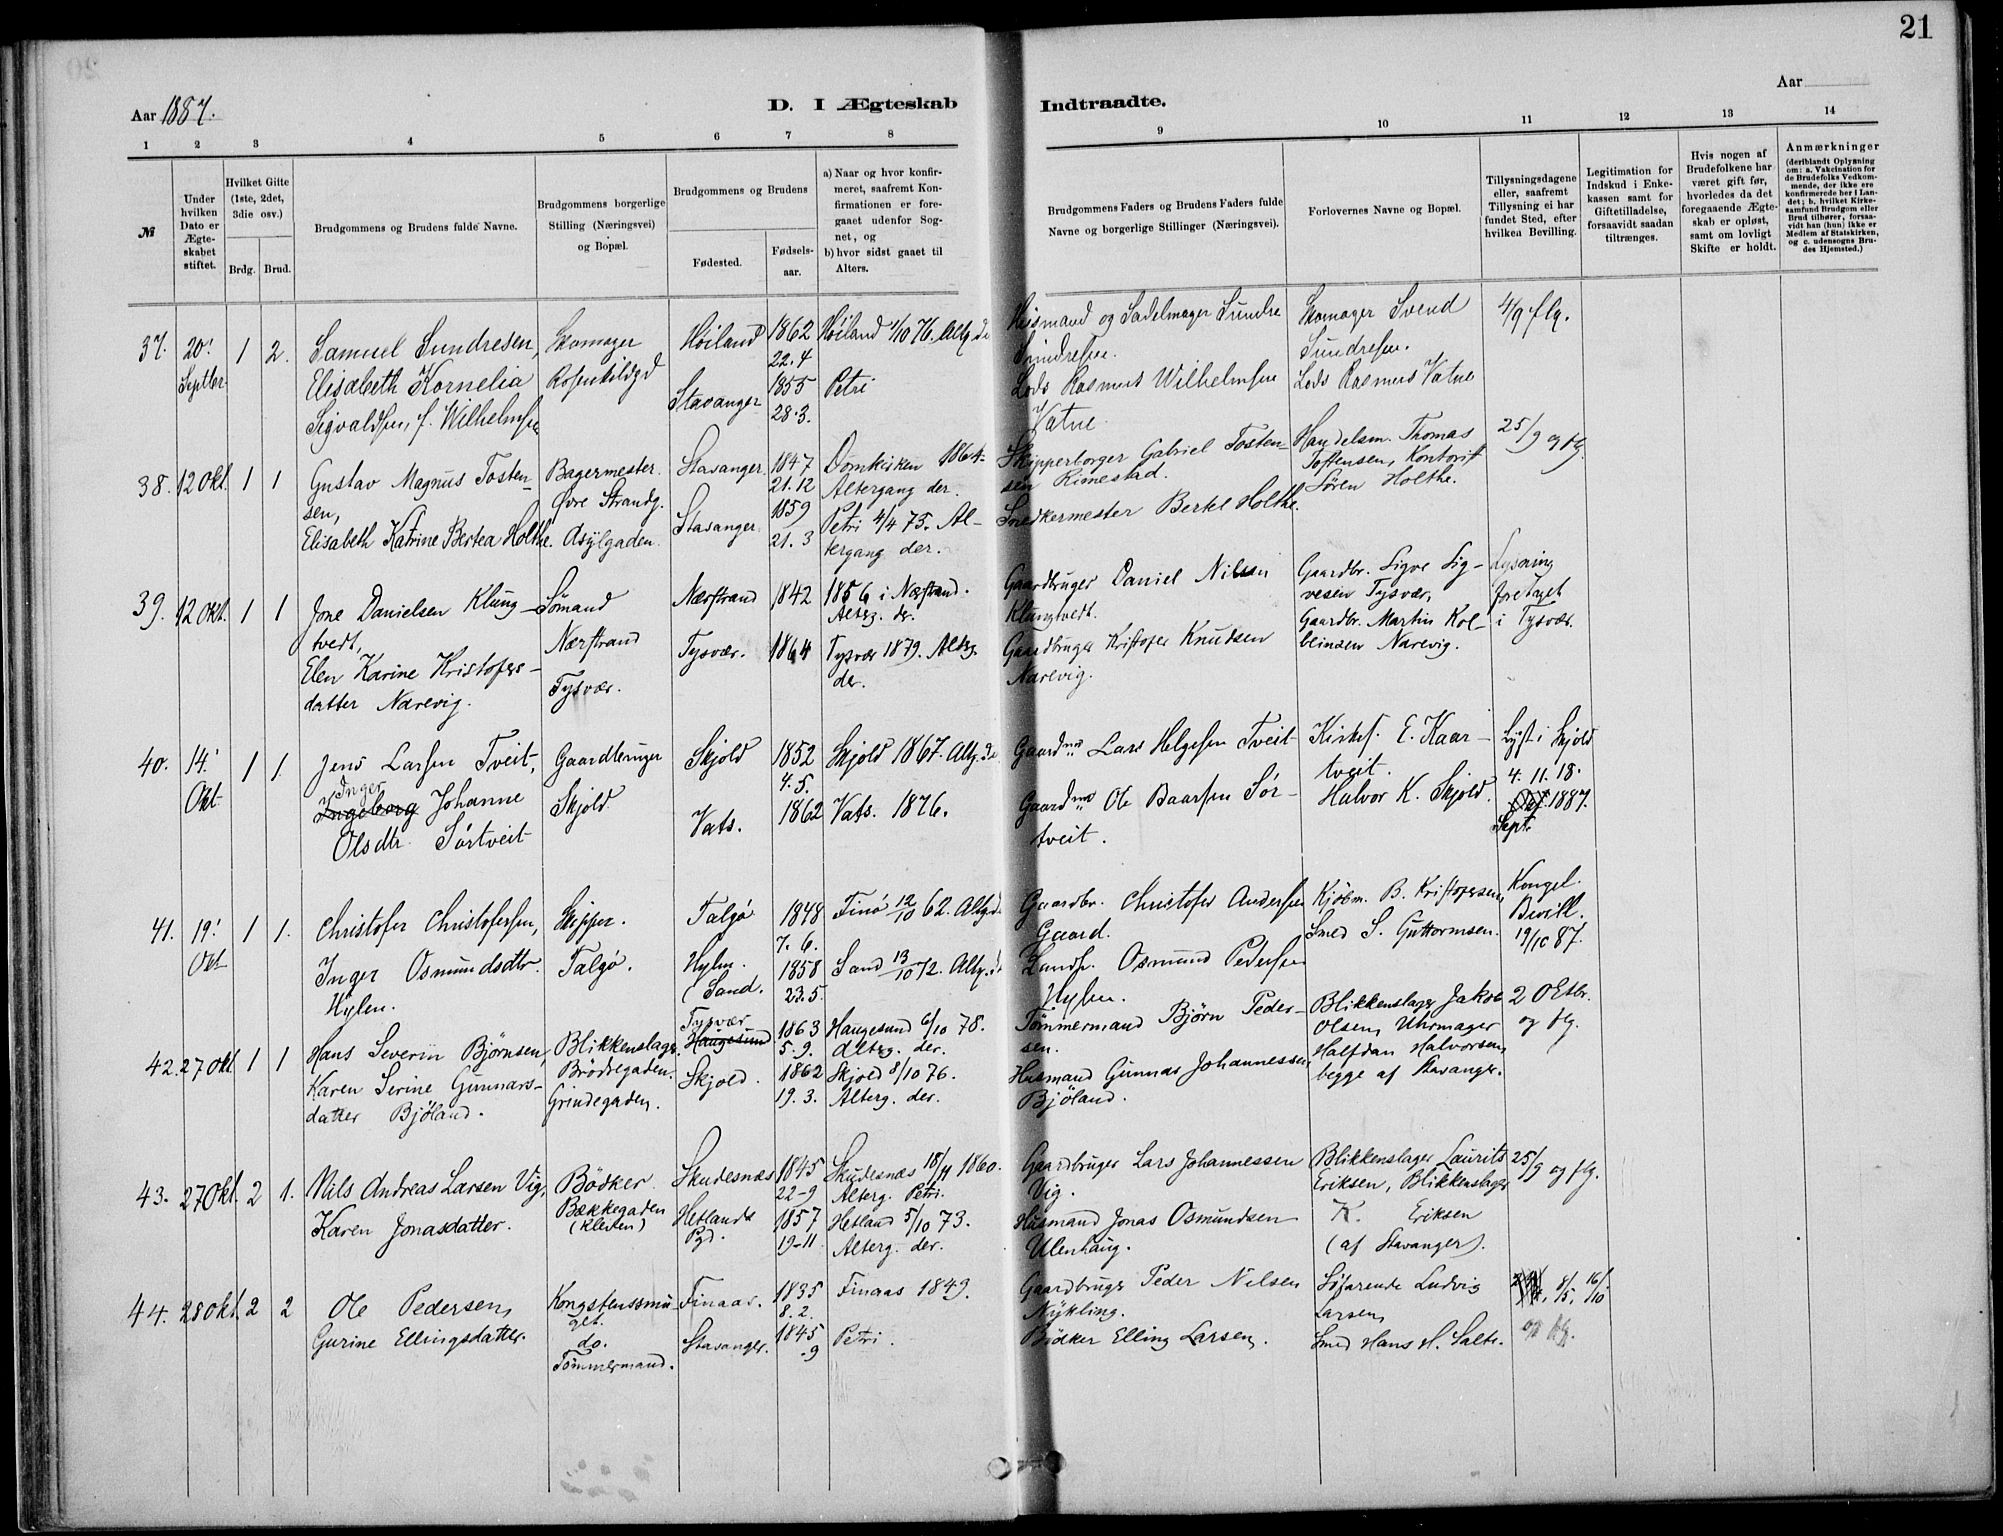 21
Aar 1887.
D. I Ægteskab
Indtraadte.
Aar
1 2 3 4 5 6 7 8 9 10 11 12 13 14
№
Under hvilken Dato er Ægteskabet stiftet.
Hvilket Gifte (1ste, 2det, 3die osv.)
Brdg. Brud.
Brudgommens og Brudens fulde Navne.
Brudgommens borgerlige Stilling (Næringsvei) og Bopæl.
Brudgommens og Brudens
Fødested.
Fødselsaar.
a) Naar og hvor konfirmeret, saafremt Konfirmationen er foregaaet udenfor Sognet, og
b) hvor sidst gaaet til Alters.
Brudgommens Faders og Brudens Faders fulde Navne og borgerlige Stillinger (Næringsvei).
Forlovernes Navne og Bopæl.
Tillysningsdagene eller, saafremt Tillysning ei har fundet Sted, efter hvilken Bevilling.
Legitimation for Indskud i Enkekassen samt for Giftetilladelse, forsaavidt saadan tiltrænges.
Hvis nogen af Brudefolkene har været gift før, hvorledes da det foregaaende Ægteskab er opløst, samt om lovligt Skifte er holdt.
Anmærkninger (deriblandt Oplysning om: a. Vakcination for de Brudefolks Vedkommende, der ikke ere konfirmerede her i Landet; b. hvilket Kirkesamfund Brudgom eller Brud tilhører, forsaavidt han (hun) ikke er Medlem af Statskirken, og c. udensogns Brudes Hjemsted.)
37. 20. Septbr 1 2.
Samuel Sundresen,
Elisabeth Kornelia
Sigvaldsen, f. Wilhelmsen
Skomager
Rosenkildgd
Høiland
Stavanger
1862
22.4
1855
28.3.
Høiland 1/10 76. Altg. de
Petri
Husmand og Sadelmager Sundre
Sundresen.
Lods Rasmus Wilhelmsen
Vatne
Skomager Svend
Sundresen.
Lods Rasmus Vatne
4/9 flg.
38. 12 Okt. 1 1
Gustav Magnus Tosten-
sen,
Elisabeth Katrine Bertea Holthe.
Bagermester.
Øvre Strandg.
Asylgaden.
Stavanger.
Stavanger.
1847
21.12
1859
21.3
Domkirken 1864.
Altergang der.
Petri 4/4 75. Al-
tergang der.
Skipperborger Gabriel Tosten-
sen Rimestad.
Snedkermester Bertel Holthe.
Handelsm. Thomas
Tostensen, Kontorist
Søren Holthe.
25/9 og flg.
39. 12 Okt. 1 1
Jone Danielsen Klung-
tvedt,
Elen Karine Kristofers-
datter Narevig.
Sømand
Nærstrand
Tysvær.
Nærstrand
Tysvær.
1842
1864
1856 i Nærstrand.
Alterg. der.
Tysvær 1879. Alterg.
der.
Gaardbruger Daniel Nilsen
Klungtvedt.
Gaardbruger Kristofer Knudsen
Narevig.
Gaardbr. Sigve Sig-
vesen Tysvær,
Gaardbr. Martin Kol-
beinsen Narevig.
Lysning
foretaget
i Tysvær.
40. 14. Okt 1 1.
Jens Larsen Tveit,
Inger
Ingeborg Johanne
Olsdtr. Sørtveit
Gaardbruger
Skjold
Skjold
Vats.
1852
4.5.
1862
Skjold 1867. Altg. de
Vats. 1876.
Gaardmd Lars Helgesen Tveit
Gaardmd Ole Baarsen Sør-
tveit.
Kirkes. E. Kaar-
tveit.
Halvor K. Skjold.
Lyst i Skjold
4. 11. 18.
Okt. 1887.
Sept.
41. 19. Okt 1 1.
Christofer Christofersen,
Inger Osmundsdtr.
Hylen.
Skipper.
Talgø.
Talgø
Hylen.
(Sand.
1848
7. 6.
1858
23.5.
Finø 12/10 62. Altg. d.
Sand 13/10 72. Altg. de
Gaardbr. Christofer Andersen
Gaard.
Landh. Osmund Pedersen
Hylen.
Kjøbm. B. Kristofersen,
Smed S. Guttormsen.
Kongel.
Bevill.
19/10 87.
42. 27 Okt 1 1
Hans Severin Bjørnsen,
Karen Serine Gunnars-
datter Bjøland.
Blikkenslager.
Brødregaden.
Grindegaden.
Tysvær
Haugesund
Skjold.
1863
5.9.
1862
19.3.
Haugesund 6/10 78.
Alterg. der.
Skjold 8/10 76.
Alterg. der.
Tømmermand Bjørn Peder-
sen.
Husmand Gunnar Johannessen
Bjøland.
Blikkenslager Jakob
Olsen, Uhrmager
Halfdan Halvorsen,
begge af Stavanger.
2 Oktbr.
og flg.
43. 27 Okt. 2 1.
Nils Andreas Larsen Vig,
Karen Jonasdatter.
Bødker
Bækkegaden
(Kleiven)
Skudesnæs
Hetlands
Pgd.
1845
22-9
1857
19-11
Skudesnæs 18/11 1860.
Alterg. Petri.
Hetland 5/10 73.
Alterg. der.
Gaardbruger Lars Johannessen
Vig.
Husmand Jonas Osmundsen
Ulenhaug.
Blikkenslager Laurits
Eriksen, Blikkenslager
K. Eriksen
(af Stavanger).
25/9 og flg.
44. 28 Okt. 2 2
Ole Pedersen,
Gurine Ellingsdatter.
Kongstenssmu-
get.
do.
Tømmermand.
Finaas.
Stavanger.
1835
8.2.
1845
-9
Finaas 1849.
Petri.
Gaardbruger Peder Nilsen
Nykling.
Bødker Elling Larsen.
Søfarende Ludvig
Larsen,
Smed Hans H. Salte.
8/5, 16/10
og flg.